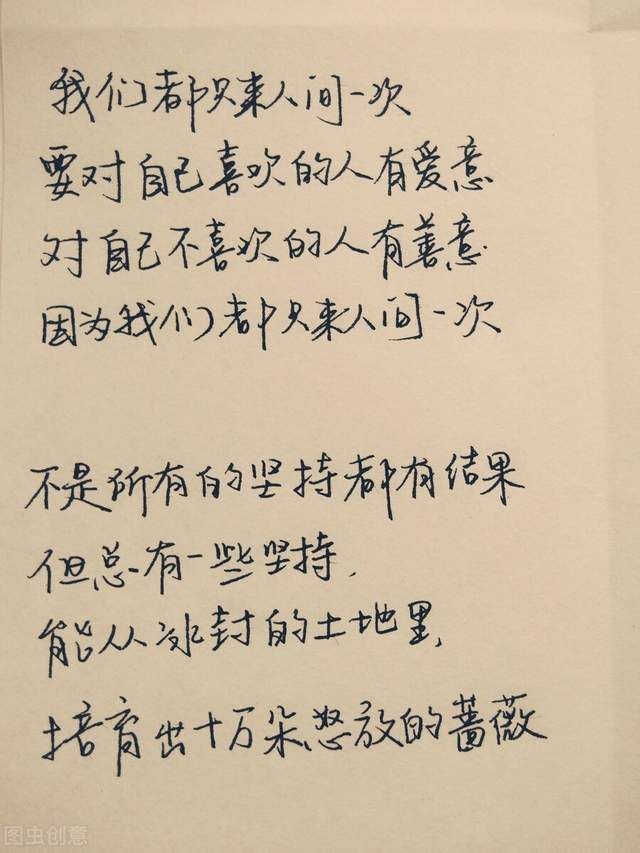 我们都只来人间一次
要对自己喜欢的人有爱意
对自己不喜欢的人有善意
因为我们都只来人间一次
不是所有的坚持都有结果
但总有一些坚持,
能从冰封的土地里,
培育出十万朵怒放的蔷薇
图虫创意